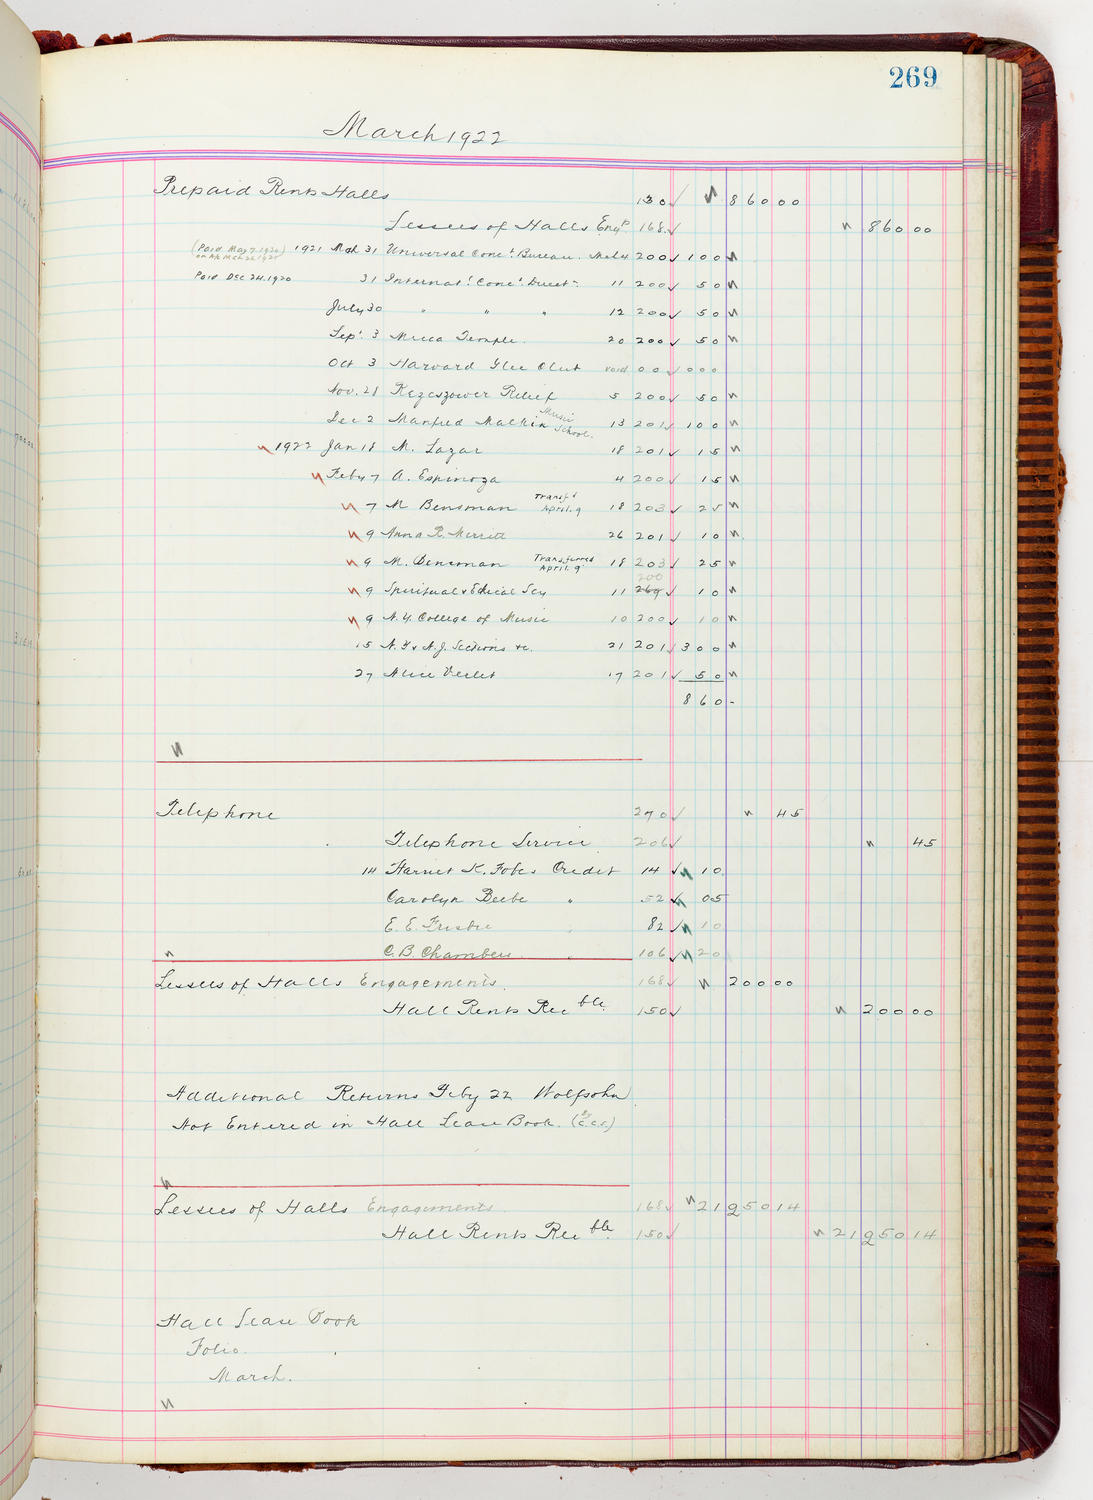 269
March 1922
Prepaid Rents Halls 130 ✓ 860 00
Lessees of Halls Eng 168 ✓ 860 00
(Paid May 7. 1920) 1921 Mch 31 Universal Conct. Bureau. 200 ✓ 100
Paid Dec 24. 1920 31 Internatl. Conct. Direct. 11 200 ✓ 50
July 30 " " " 12 200 ✓ 50
Sept. 3 Mecca Temple. 20 200 ✓ 50
Oct 3 Harvard Glee Club void 00 ✓ 000
Nov. 21 Relief 5 200 ✓ 50
Dec 2 Manfred Malkin Music School. 13 201 ✓ 100
1922 Jan 18 M. Lazar 18 201 ✓ 15
Feby 7 A. Espinoza 4 200 ✓ 15
7 M Bensman Transfd April. 9 18 203 ✓ 25
9 Anna R. Merritt 26 201 ✓ 10
9 M. Bensman Transferred April. 9 18 203 ✓ 25
9 Spiritual & Ethical Scy 11 200 ✓ 10
9 N.Y. College of Music 10 200 ✓ 10
15 N.Y & N.J. Sections &c. 21 201 ✓ 300
27 Alice Verlet 17 201 ✓ 50
860 -
Telephone 270 ✓ 45
Telephone Service 206 ✓ 45
14 Harriet K. Fobes Credit 14 ✓ 10
Carolyn Beebe " 52 ✓ 05
E. E. Frisbie " 82 ✓ 10
C. B. Chambers " 106 ✓ 20
Lessees of Halls Engagements. 168 ✓ 200 00
Hall Rents Recble. 150 ✓ 200 00
Additional Returns Feby 22 Wolfsohn
Not Entered in Hall Lease Book. (by C.C.S.)
Lessees of Halls Engagements. 168 ✓ 21950 14
Hall Rents Recble. 150 ✓ 21950 14
Hall Lease Book
Folio.
March.